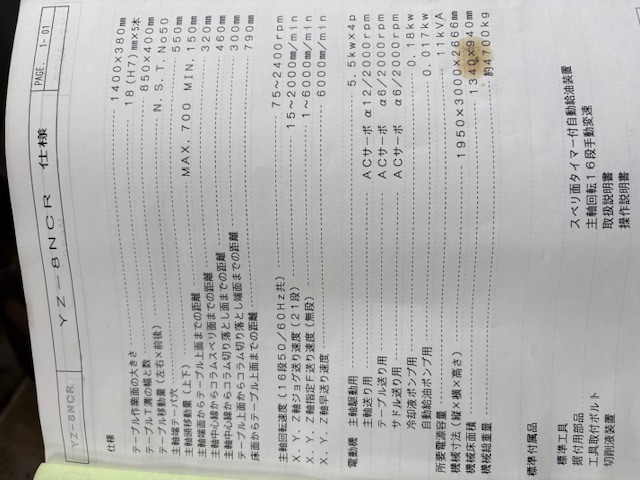 YZ-8NCR YZ-8NCR 仕様 PAGE. 1-01
仕様
テーブル作業面の大きさ 1400×380㎜
テーブルT溝の幅と数 18(H7)㎜×5本
テーブル移動量(左右×前後) 850×400㎜
主軸端テーパ穴 N.S.T.No50
主軸頭移動量(上下) 550㎜
主軸端面からテーブル上面までの距離 MAX.700 MIN.150㎜
主軸中心線からコラムスベリ面までの距離 320㎜
主軸中心線からコラム切り落とし面までの距離 460㎜
テーブル上面からコラム切り落とし端面までの距離 300㎜
床面からテーブル上面までの距離 790㎜
主軸回転速度(16段50/60Hz共) 75~2400rpm
X.Y.Z軸ジョグ送り速度(21段) 15~2000㎜/min
X.Y.Z軸指定F送り速度(無段) 1~6000㎜/min
X.Y.Z軸早送り速度 6000㎜/min
電動機 主軸駆動用 5.5kw×4p
主軸送り用 ACサーボ α12/2000rpm
テーブル送り用 ACサーボ α6/2000rpm
サドル送り用 ACサーボ α6/2000rpm
冷却液ポンプ用 0.18kw
自動給油ポンプ用 0.017kw
所要電源容量 11kVA
機械寸法(縦×横×高さ) 1950×3000×2666㎜
機械床面積 1340×940㎜
機械総重量 約4700kg
標準付属品
標準工具 スベリ面タイマー付自動給油装置
据付用部品 主軸回転16段手動変速
工具取付ボルト 取扱説明書
切削液装置 操作説明書